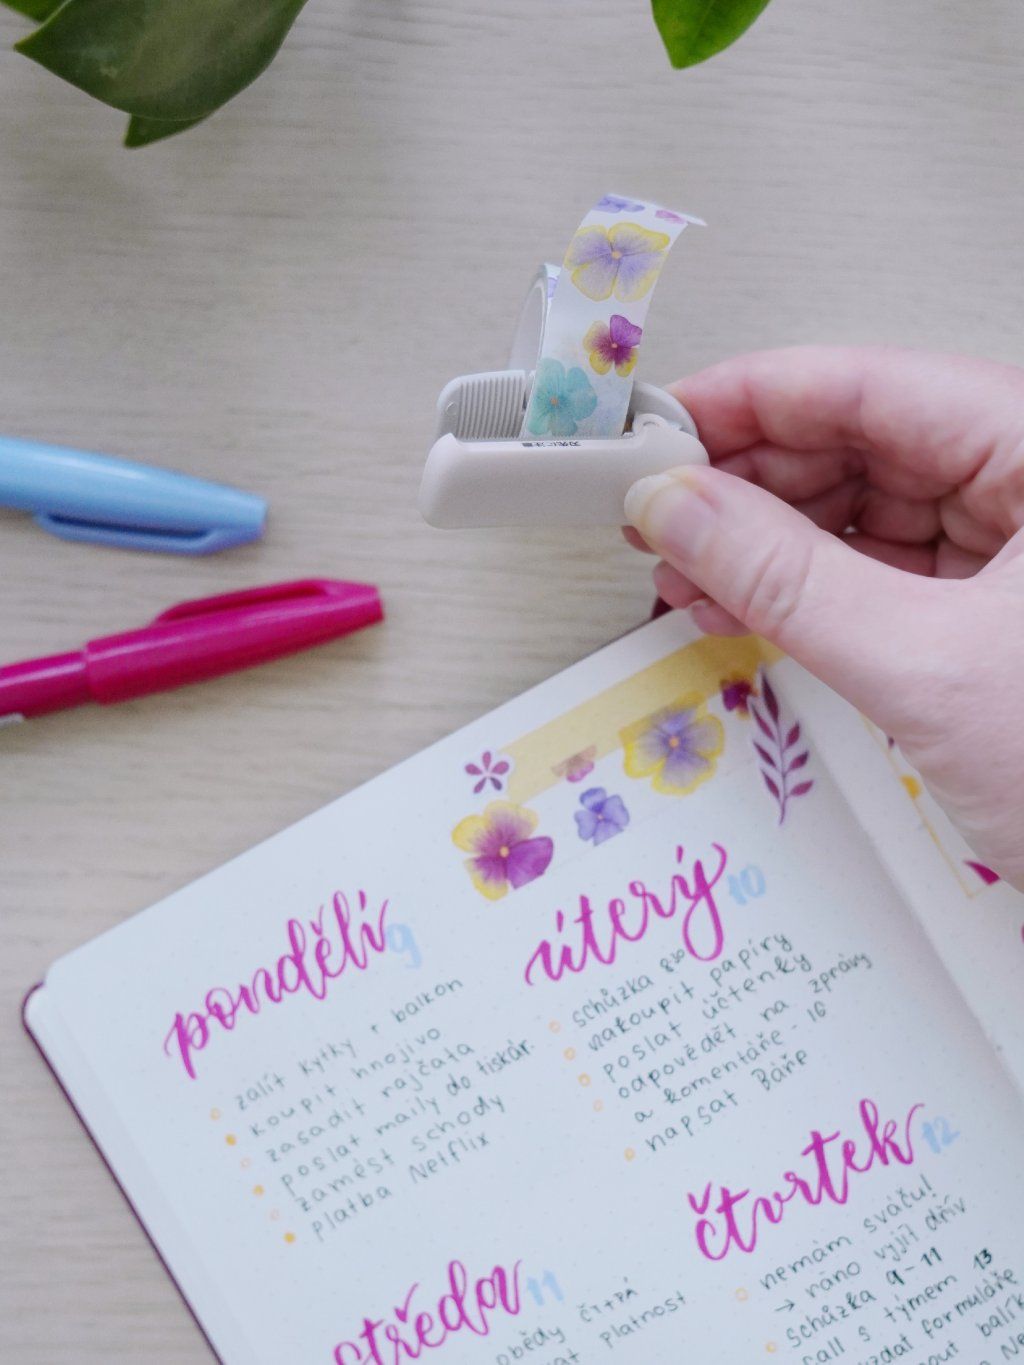 pondělí 9
zalít kytky + balkon
koupit hnojivo
zasadit rajčata
poslat maily do tiskár.
zamést schody
platba Netflix
úterý 10
schůzka 8³⁰
nakoupit papíry
poslat účtenky
odpovědět na zprávy
a komentáře - IG
napsat Báře
středa 11
obědy ČT+PÁ
platnost
čtvrtek 12
nemám sváču!
→ ráno vyjít dřív
schůzka 9-11
call s týmem 13
formuláře
balík